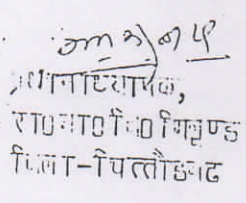 प्रधानाध्यापक,
रा०मा०वि० गिलूण्ड
जिला-चित्तौडगढ